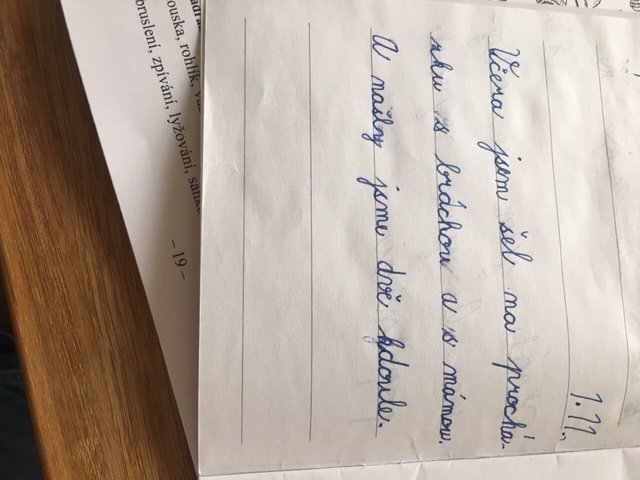 1. 11.
Včera jsem šel na prochá.
zku s bráchou a s mámou.
A našly jsme dvě kdoule.
ouska, rohlík,
bruslení, zpívání, lyžování, sáňk
– 19 –